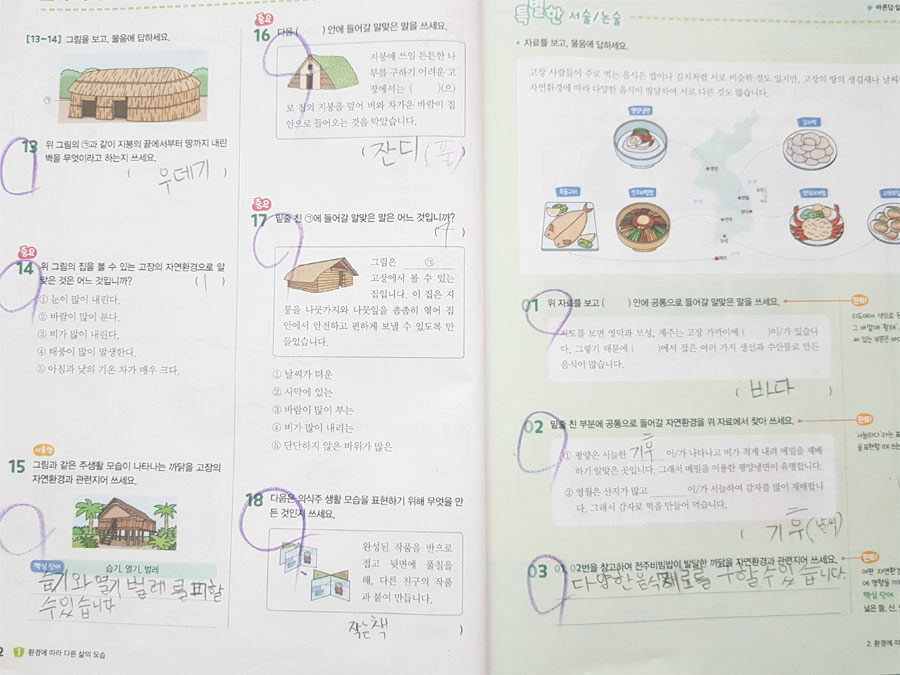 [13~14] 그림을 보고, 물음에 답하시오.
㉠
13 위 그림의 ㉠과 같이 지붕의 끝에서부터 땅까지 내린
벽을 무엇이라고 하는지 쓰세요.
( 우데기 )
중요
14 위 그림의 집을 볼 수 있는 고장의 자연환경으로 알
맞은 것은 어느 것입니까? ( 1 )
① 눈이 많이 내린다.
② 바람이 많이 분다.
③ 비가 많이 내린다.
④ 태풍이 많이 발생한다.
⑤ 아침과 낮의 기온 차가 매우 크다.
서술형
15 그림과 같은 주생활 모습이 나타나는 까닭을 고장의
자연환경과 관련지어 쓰세요.
핵심 단어 습기, 열기, 벌레
습기와 열기 벌레를 피할
수 있습니다
1 환경에 따라 다른 삶의 모습
중요
16 다음 ( ) 안에 들어갈 알맞은 말을 쓰세요.
지붕에 쓰일 튼튼한 나
무를 구하기 어려운 고
장에서는 ( )(으)
로 집의 지붕을 덮어 비와 차가운 바람이 집
안으로 들어오는 것을 막았습니다.
( 잔디 (풀)
중요
17 밑줄 친 ㉠에 들어갈 알맞은 말은 어느 것입니까?
( 4 )
그림은 ㉠
고장에서 볼 수 있는
집입니다. 이 집은 지
붕을 나뭇가지와 나뭇잎을 촘촘히 엮어 집
안에서 안전하고 편하게 보낼 수 있도록 만
들었습니다.
① 날씨가 더운
② 사막에 있는
③ 바람이 많이 부는
④ 비가 많이 내리는
⑤ 단단하지 않은 바위가 많은
18 다음은 의식주 생활 모습을 표현하기 위해 무엇을 만
든 것인지 쓰세요.
완성된 작품을 반으로
접고 뒷면에 풀칠을
해, 다른 친구의 작품
과 붙여 만듭니다.
작은책 )
특별한 서술/논술
바른답·알
자료를 보고, 물음에 답하세요.
고장 사람들이 주로 먹는 음식은 밥이나 김치처럼 서로 비슷한 것도 있지만, 고장의 땅의 생김새나 날씨와
자연환경에 따라 다양한 음식이 발달하여 서로 다른 것도 많습니다.
평양냉면
감자떡
옥돔구이
전주비빔밥
01 위 자료를 보고 ( ) 안에 공통으로 들어갈 알맞은 말을 쓰세요.
지도를 보면 영덕과 보성, 제주는 고장 가까이에 ( )이/가 있습니
다. 그렇기 때문에 ( )에서 잡은 여러 가지 생선과 수산물로 만든
음식이 많습니다.
( 바다 )
02 밑줄 친 부분에 공통으로 들어갈 자연환경을 위 자료에서 찾아 쓰세요.
① 평양은 서늘한 기우 이/가 나타나고 비가 적게 내려 메밀을 재배
하기 알맞은 곳입니다. 그래서 메밀을 이용한 평양냉면이 유명합니다.
② 영월은 산지가 많고 이/가 서늘하여 감자를 많이 재배합니
다. 그래서 감자로 떡을 만들어 먹습니다.
( 기우(날씨) )
03 01, 02번을 참고하여 전주비빔밥이 발달한 까닭을 자연환경과 관련지어 쓰세요.
다양한 음식 재료를 구할 수 있습니다.
핵심 단어
2. 환경에 따